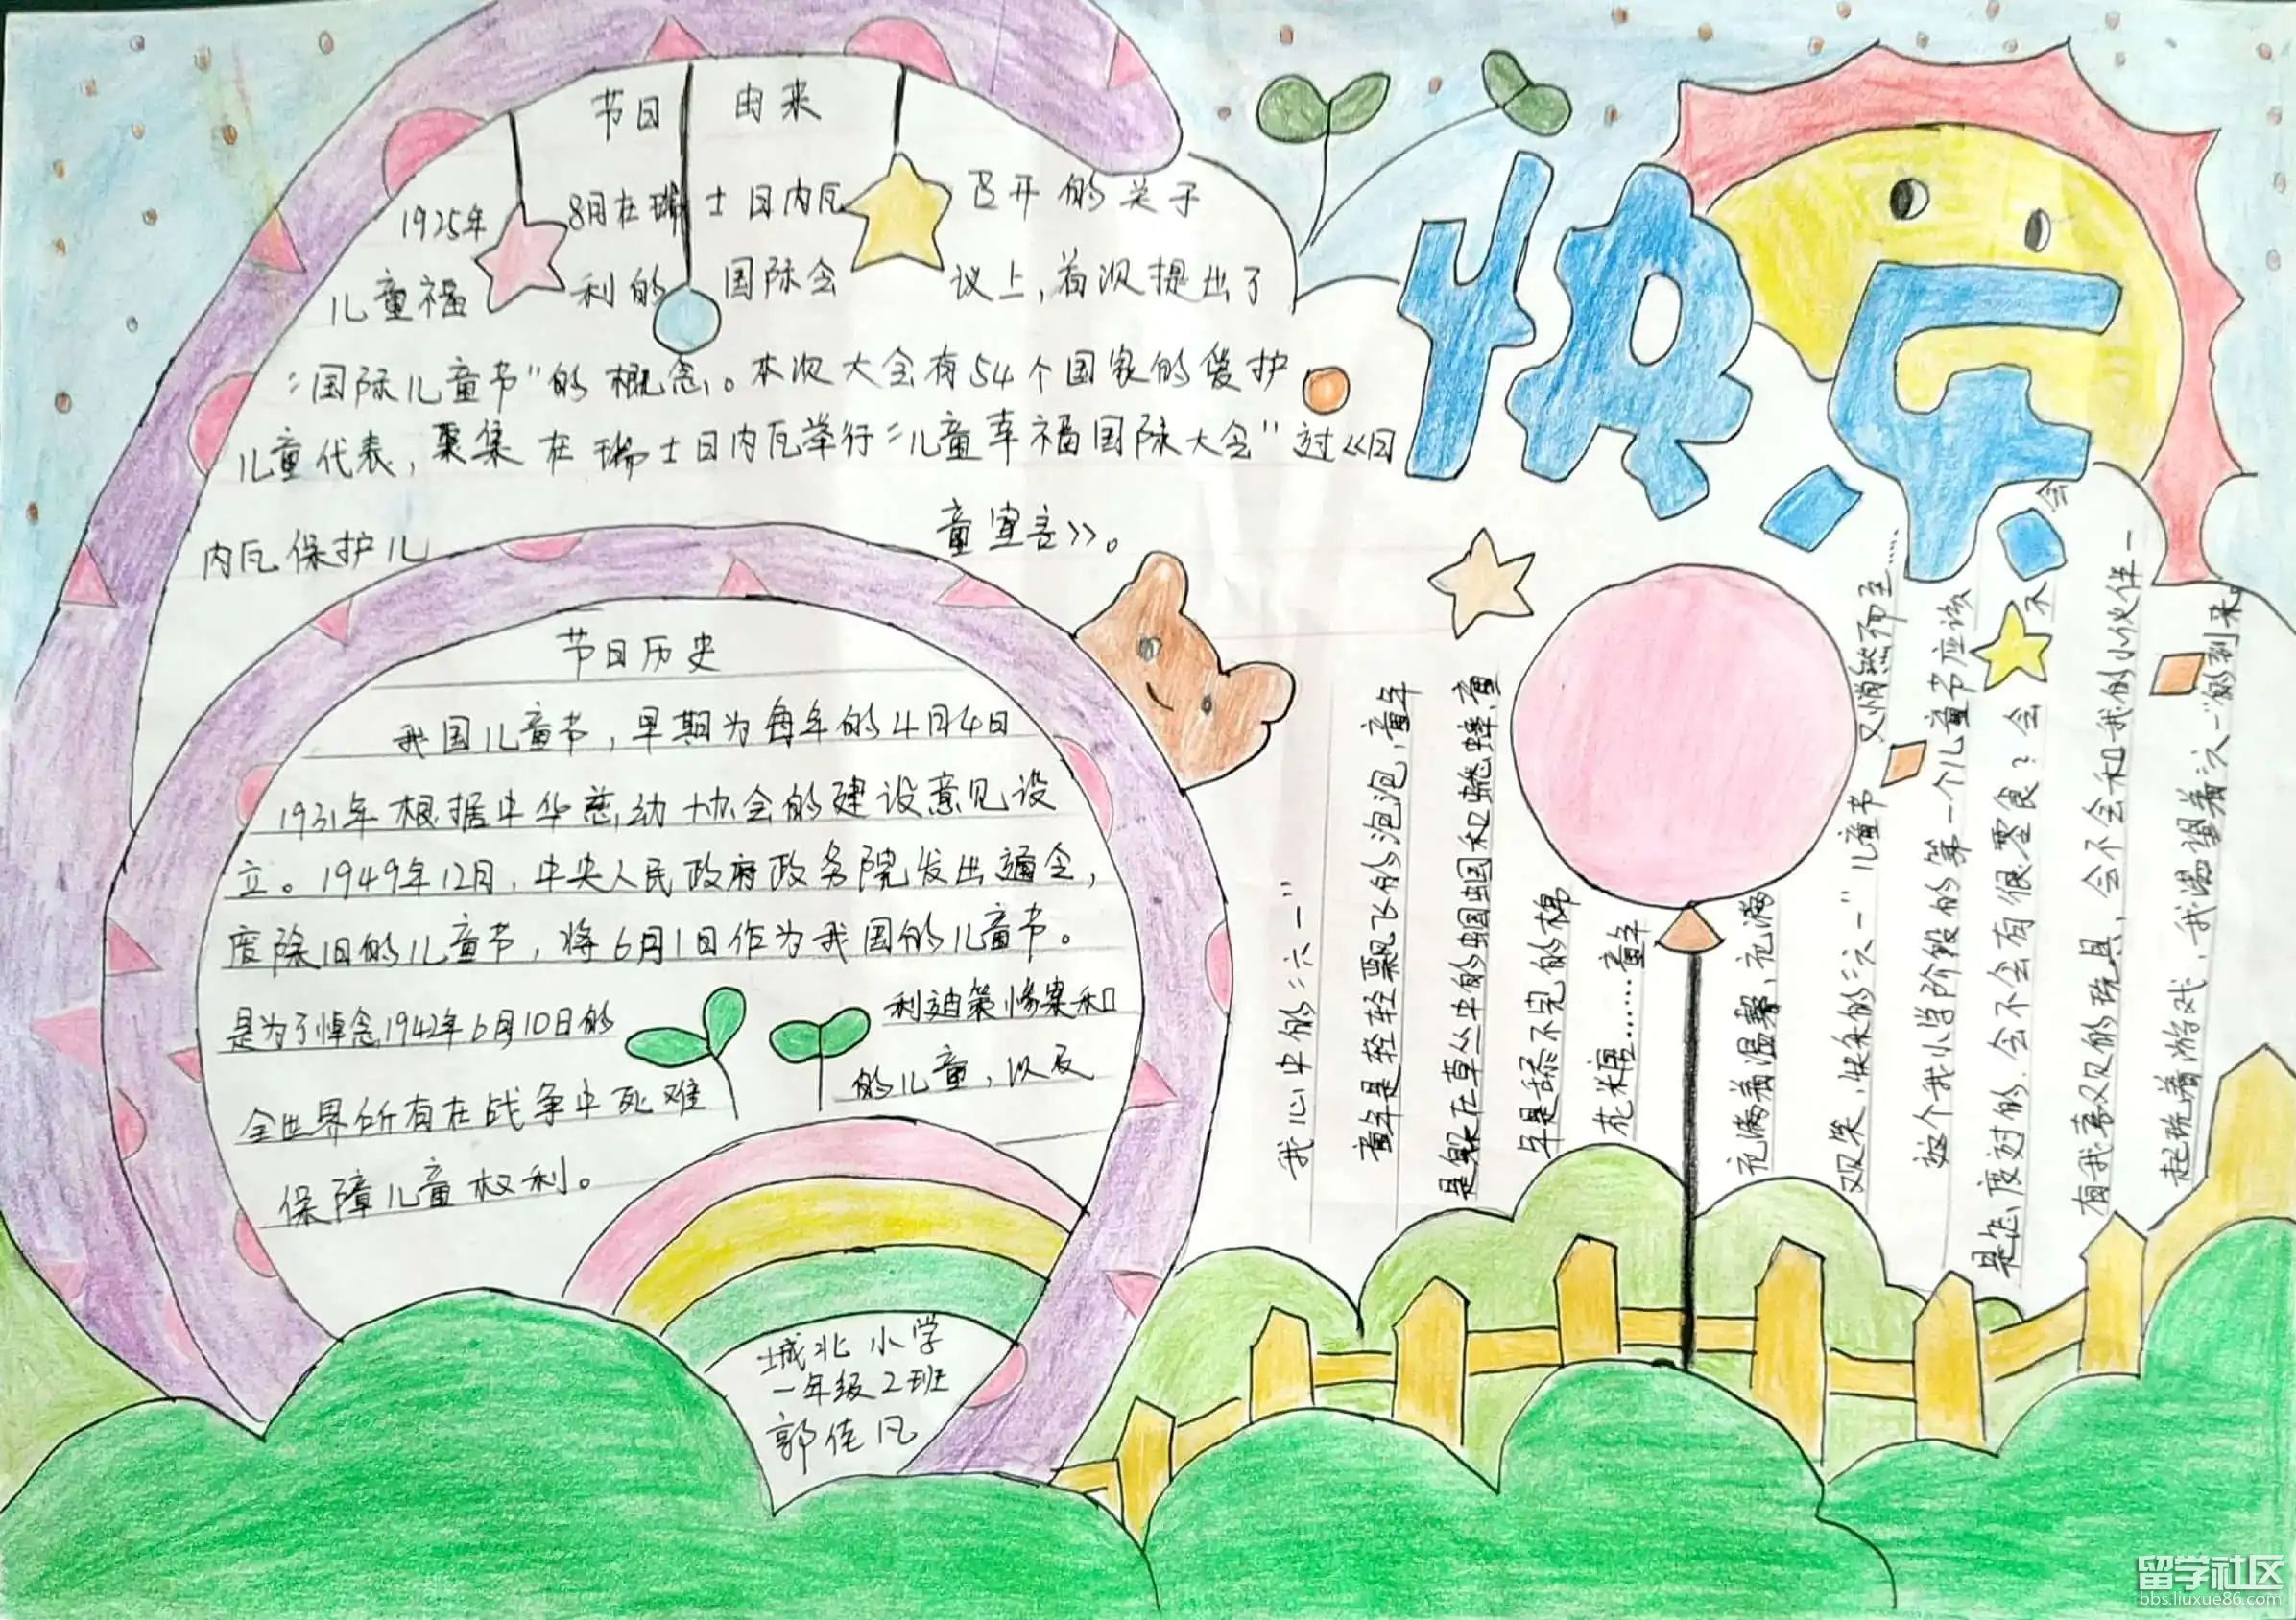 节日由来
1925年8月在瑞士日内瓦召开的关于
儿童福利的国际会议上,首次提出了
"国际儿童节"的概念。本次大会有54个国家的爱护
儿童代表,聚集在瑞士日内瓦举行"儿童幸福国际大会"过《日
内瓦保护儿童宣言》。
节日历史
我国儿童节,早期为每年的4月4日
1931年根据中华慈幼协会的建设意见设
立。1949年12月,中央人民政府政务院发出通令,
废除旧的儿童节,将6月1日作为我国的儿童节。
是为了悼念1942年6月10日的利迪策惨案和
全世界所有在战争中死难的儿童,以及
保障儿童权利。
城北小学
一年级2班
郭佳凡
快乐
我心中的"六一"
童年是轻轻飘飞的泡泡,童年
是躲在草丛中的蝈蝈和蟋蟀,童
年是舔不完的棉
花糖……童年
充满着温馨,充满
欢笑,快乐的"六一"儿童节又悄然而至……
这个我小学阶段的第一个儿童节应该
是怎度过的,会不会有很零食?会不会
有我喜欢的玩具,会不会和我的小伙伴一
起玩着游戏,我渴望着"六一"的到来。
留学社区
bbs.liuxue86.com